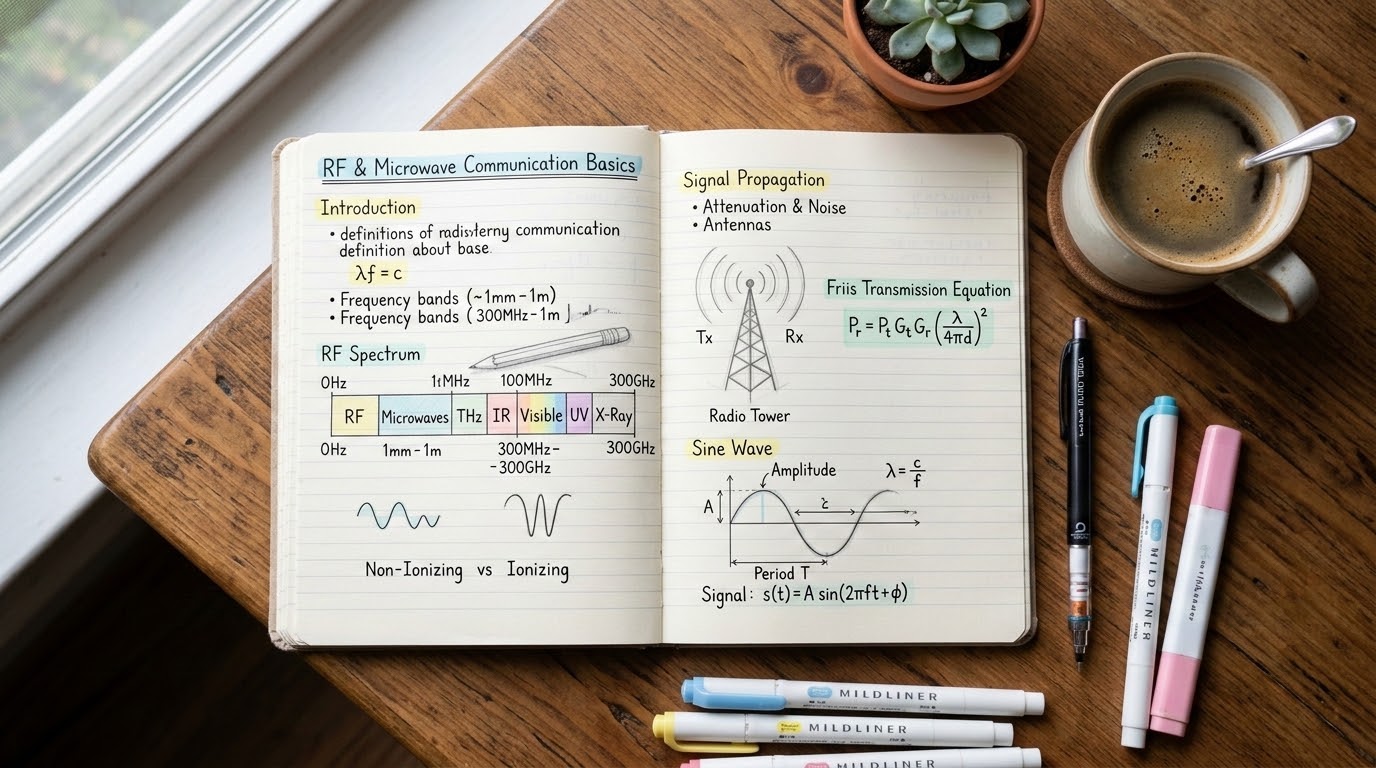 RF & Microwave Communication Basics
Introduction
• definitions of communication
definition about base.
λf = c
• Frequency bands (~1mm-1m)
• Frequency bands (300MHz-1m]
RF Spectrum
0Hz 100MHz 300GHz
RF Microwaves THz IR Visible UV X-Ray
0Hz 1mm-1m 300MHz- 300GHz
-300GHz
Non-Ionizing vs Ionizing
Signal Propagation
• Attenuation & Noise
• Antennas
Tx Rx
Radio Tower
Friis Transmission Equation
Pr = Pt Gt Gr (λ/4πd)²
Sine Wave
Amplitude
λ = c/f
A
Period T
Signal: s(t) = A sin(2πft+φ)
MILDLINER
MILDLINER
MILDLINER
MILDLINER